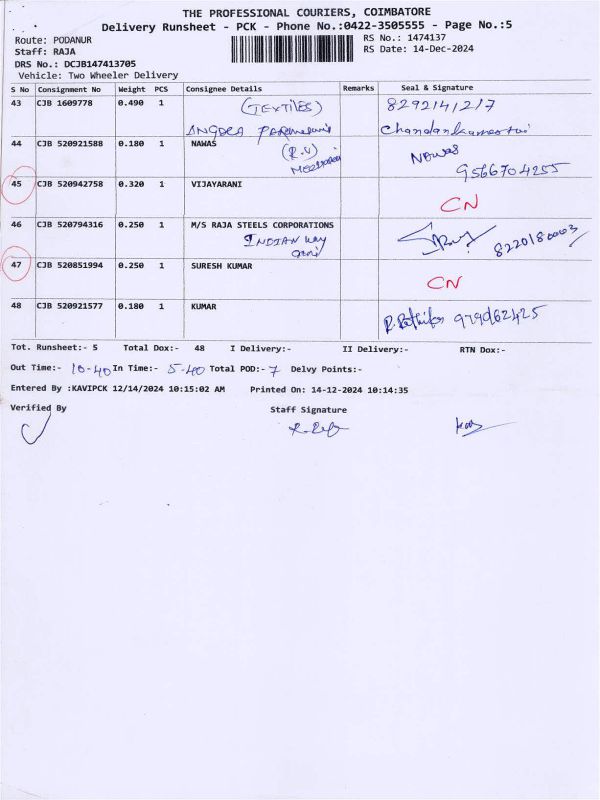 THE PROFESSIONAL COURIERS, COIMBATORE
Delivery Runsheet - PCK - Phone No.:0422-3505555 - Page No.:5
Route: PODANUR
RS No.: 1474137
Staff: RAJA
RS Date: 14-Dec-2024
DRS No.: DCJB147413705
Vehicle: Two Wheeler Delivery
S No Consignment No Weight PCS Consignee Details Remarks Seal & Signature
43 CJB 1609778 0.490 1 (TEXTILES) 8292141217
ANGDRA
44 CJB 520921588 0.180 1 NAWAS NAWAS
(R.V) 9566704255
45 CJB 520942758 0.320 1 VIJAYARANI CN
46 CJB 520794316 0.250 1 M/S RAJA STEELS CORPORATIONS
INDIAN 8220180003
47 CJB 520851994 0.250 1 SURESH KUMAR CN
48 CJB 520921577 0.180 1 KUMAR
Tot. Runsheet:- 5 Total Dox:- 48 I Delivery:- II Delivery:- RTN Dox:-
Out Time:- 10-40 In Time:- 5-40 Total POD:- 7 Delvy Points:-
Entered By :KAVIPCK 12/14/2024 10:15:02 AM Printed On: 14-12-2024 10:14:35
Verified By Staff Signature